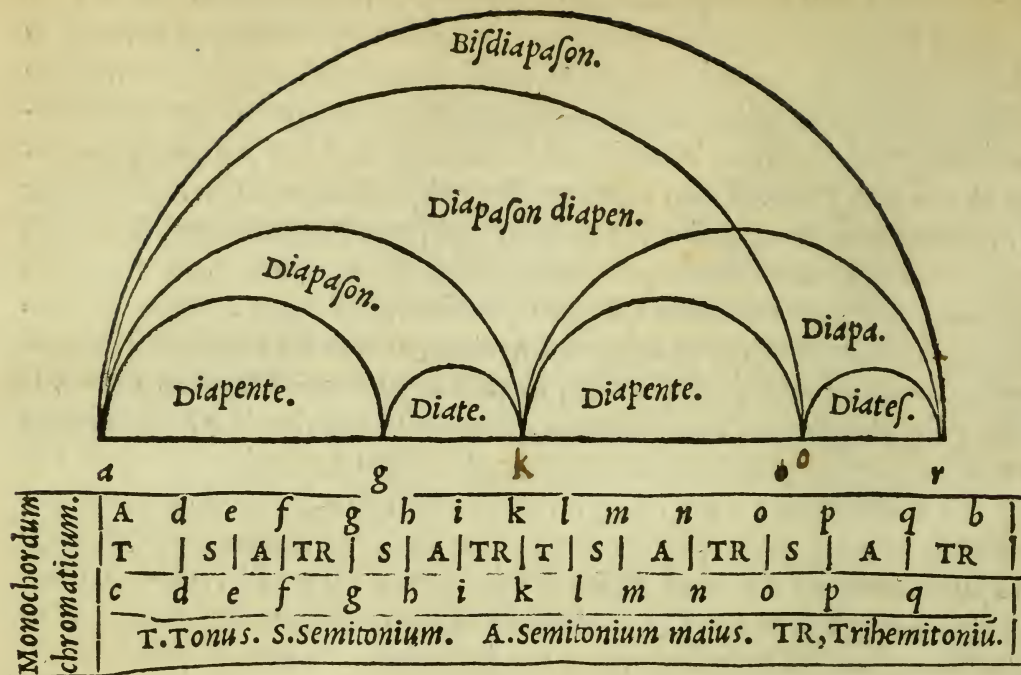 Biſdiapaſon.
Diapaſon diapen.
Diapaſon.
Diapa.
Diapente.
Diate.
Diapente.
Diateſ.
a g k o r
Monochordum
chromaticum.
A d e f g h i k l m n o p q b
T S A TR S A TR T S A TR S A TR
c d e f g h i k l m n o p q
T.Tonus. S.Semitonium. A.Semitonium maius. TR,Trihemitoniū.